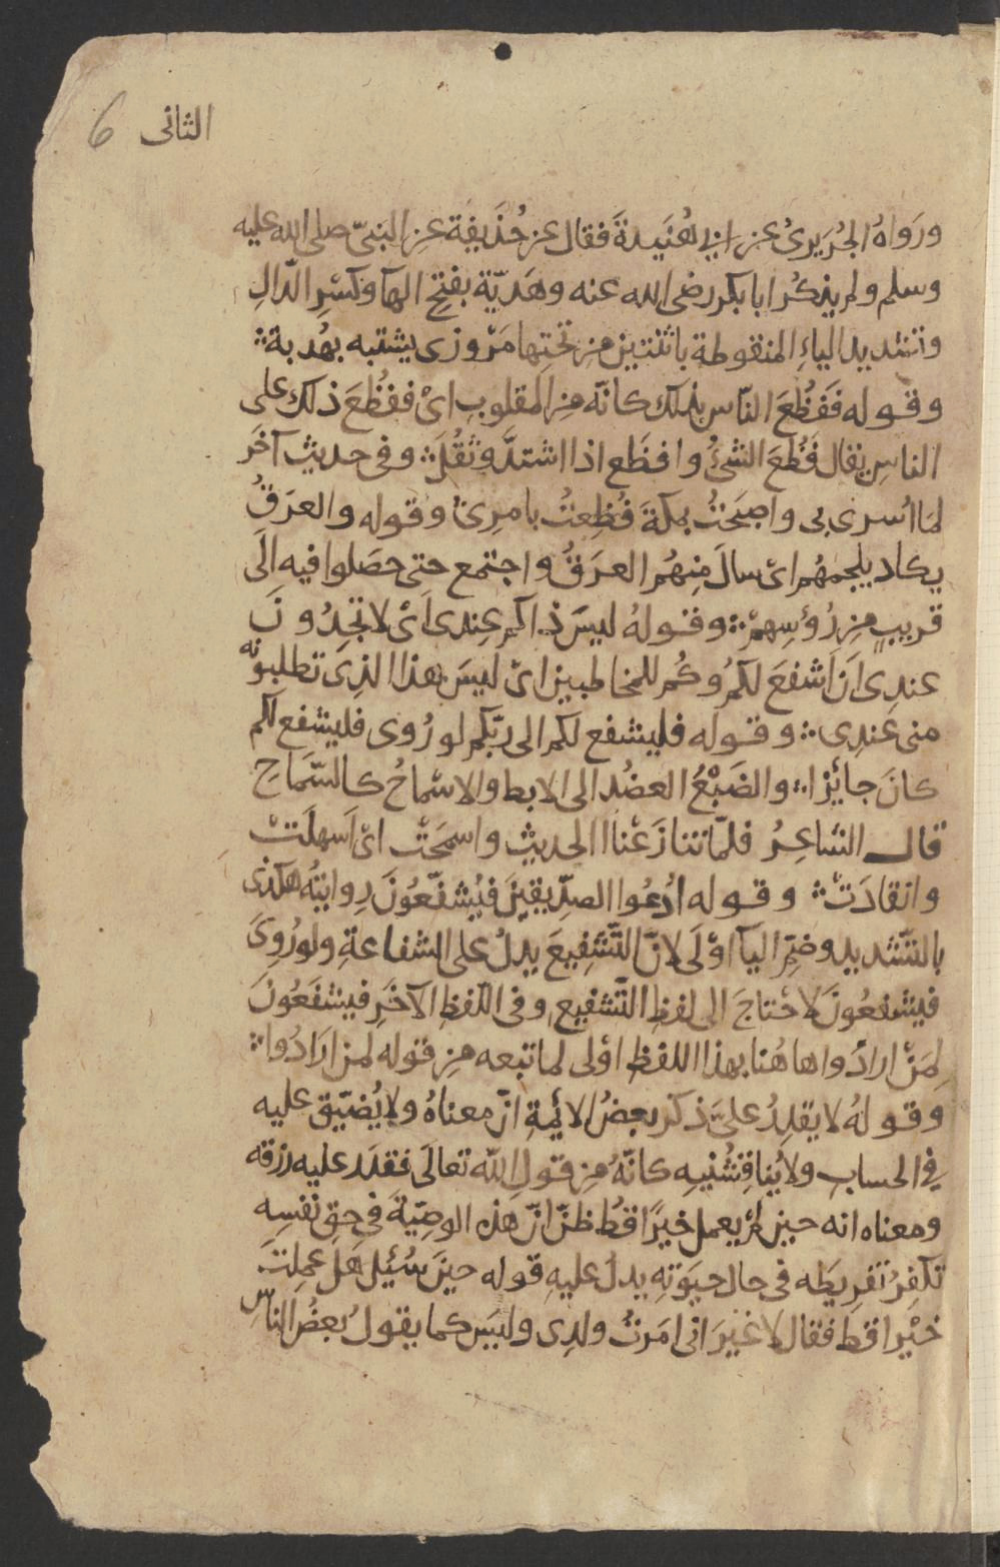 الثانى 6
ورَوَاهُ الجُرَيرىُّ عن ابى هُنَيدةَ فقال عن حُذَيفة عن النبىّ صلى الله عليه
وسلم ولم يذكُر ابا بكر رضى الله عنه وهَدِيّة بفتحِ الهآ وكَسْرِ الدّالِ
وتشديد الياءِ المنقوطة باثنتين من تحتِها مَرْوزى يشتبه بهُدبة ∴
وقوله فَفَظُعَ النّاس بذلك كانّه من المقلوبِ اىْ ففَظُعَ ذلك على
الناسِ يقال فَظُعَ الشئُ وافظَع اذا اشتدَّ وثَقُلَ ∴ وفى حديث آخَر
لمّا اُسرى بى واصبَحتُ بمكّةَ فُظِعتُ بامرِىْ وقوله والعرَقُ
يكاد يلجمهُم اىْ سالَ مِنهُم العرَقُ واجتمع حتى حصَلوا فيه الَى
قريبٍ مِن رُؤسِهمْ ∴ وقولهُ ليسَ ذاكم عِندى اىْ لا تجِدُونَ
عندِى اَن اَشفعَ لكُم وكُم للمخاطبين اىْ ليسَ هذا الذِى تطلبونه
منى عندِى ∴ وقوله فليشفع لكم الى ربّكم لو رُوى فليشفع لكم
كانَ جايَزا ∴ والضَبْعُ العضُد الى الابط والاسْماحُ كالسّمَاحِ
قال الشاعِرُ فلمّا تنازَعْنا الحديثَ واسمَحَتْ اىْ اَسهلَتْ
وانقادَتْ ∴ وقوله ادُعُوا الصِدّيقينَ فيُشفّعُونَ رِوايتُه هكذى
بالتّشديد وضمّ اليآ اوْلَى لانّ التّشفِيعَ يدلُ على الشفاعةِ ولو رُوِىَ
فيشفعُونَ لاحْتاجَ الى لفظِ التّشفيع وفى اللّفظِ الآخَرِ فيشفَعُونَ
لِمَنْ ارادُوا هاهُنا بهذا اللفظ اوْلى لما تبعه مِن قوله لمن ارَادُوا ∴
وقولهُ لا يقدِرُ علىَّ ذكر بعضُ الائمةِ انّ معناهُ ولا يُضيّق عليه
فِى الحسابِ ولا يُناقِشُنِيه كانّهُ مِن قولِ اللّه تعالَى فقدَر عليه رزقه
ومعناه انه حين لمْ يعمل خيرًا قطُ ظنّ انّ هذه الوصيّةَ فى حقِ نفسِهِ
تكفِرُ تفرِيطَه فى حال حيَوتِهِ يدلُ عليهِ قوله حينَ سُئِل هَل عمِلتَ
خيْرا قط فقال لا غيْرَ انى امَرتُ ولدِى وليسَ كما يقولُ بعضُ الناسِ